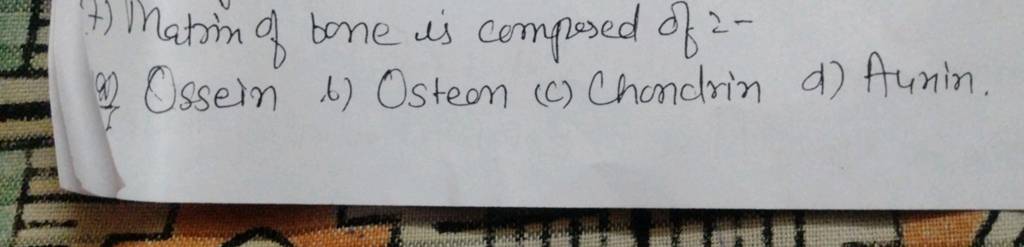 7) Matrix of bone is composed of :-
a) Ossein b) Osteon (c) Chondrin d) Aunin.